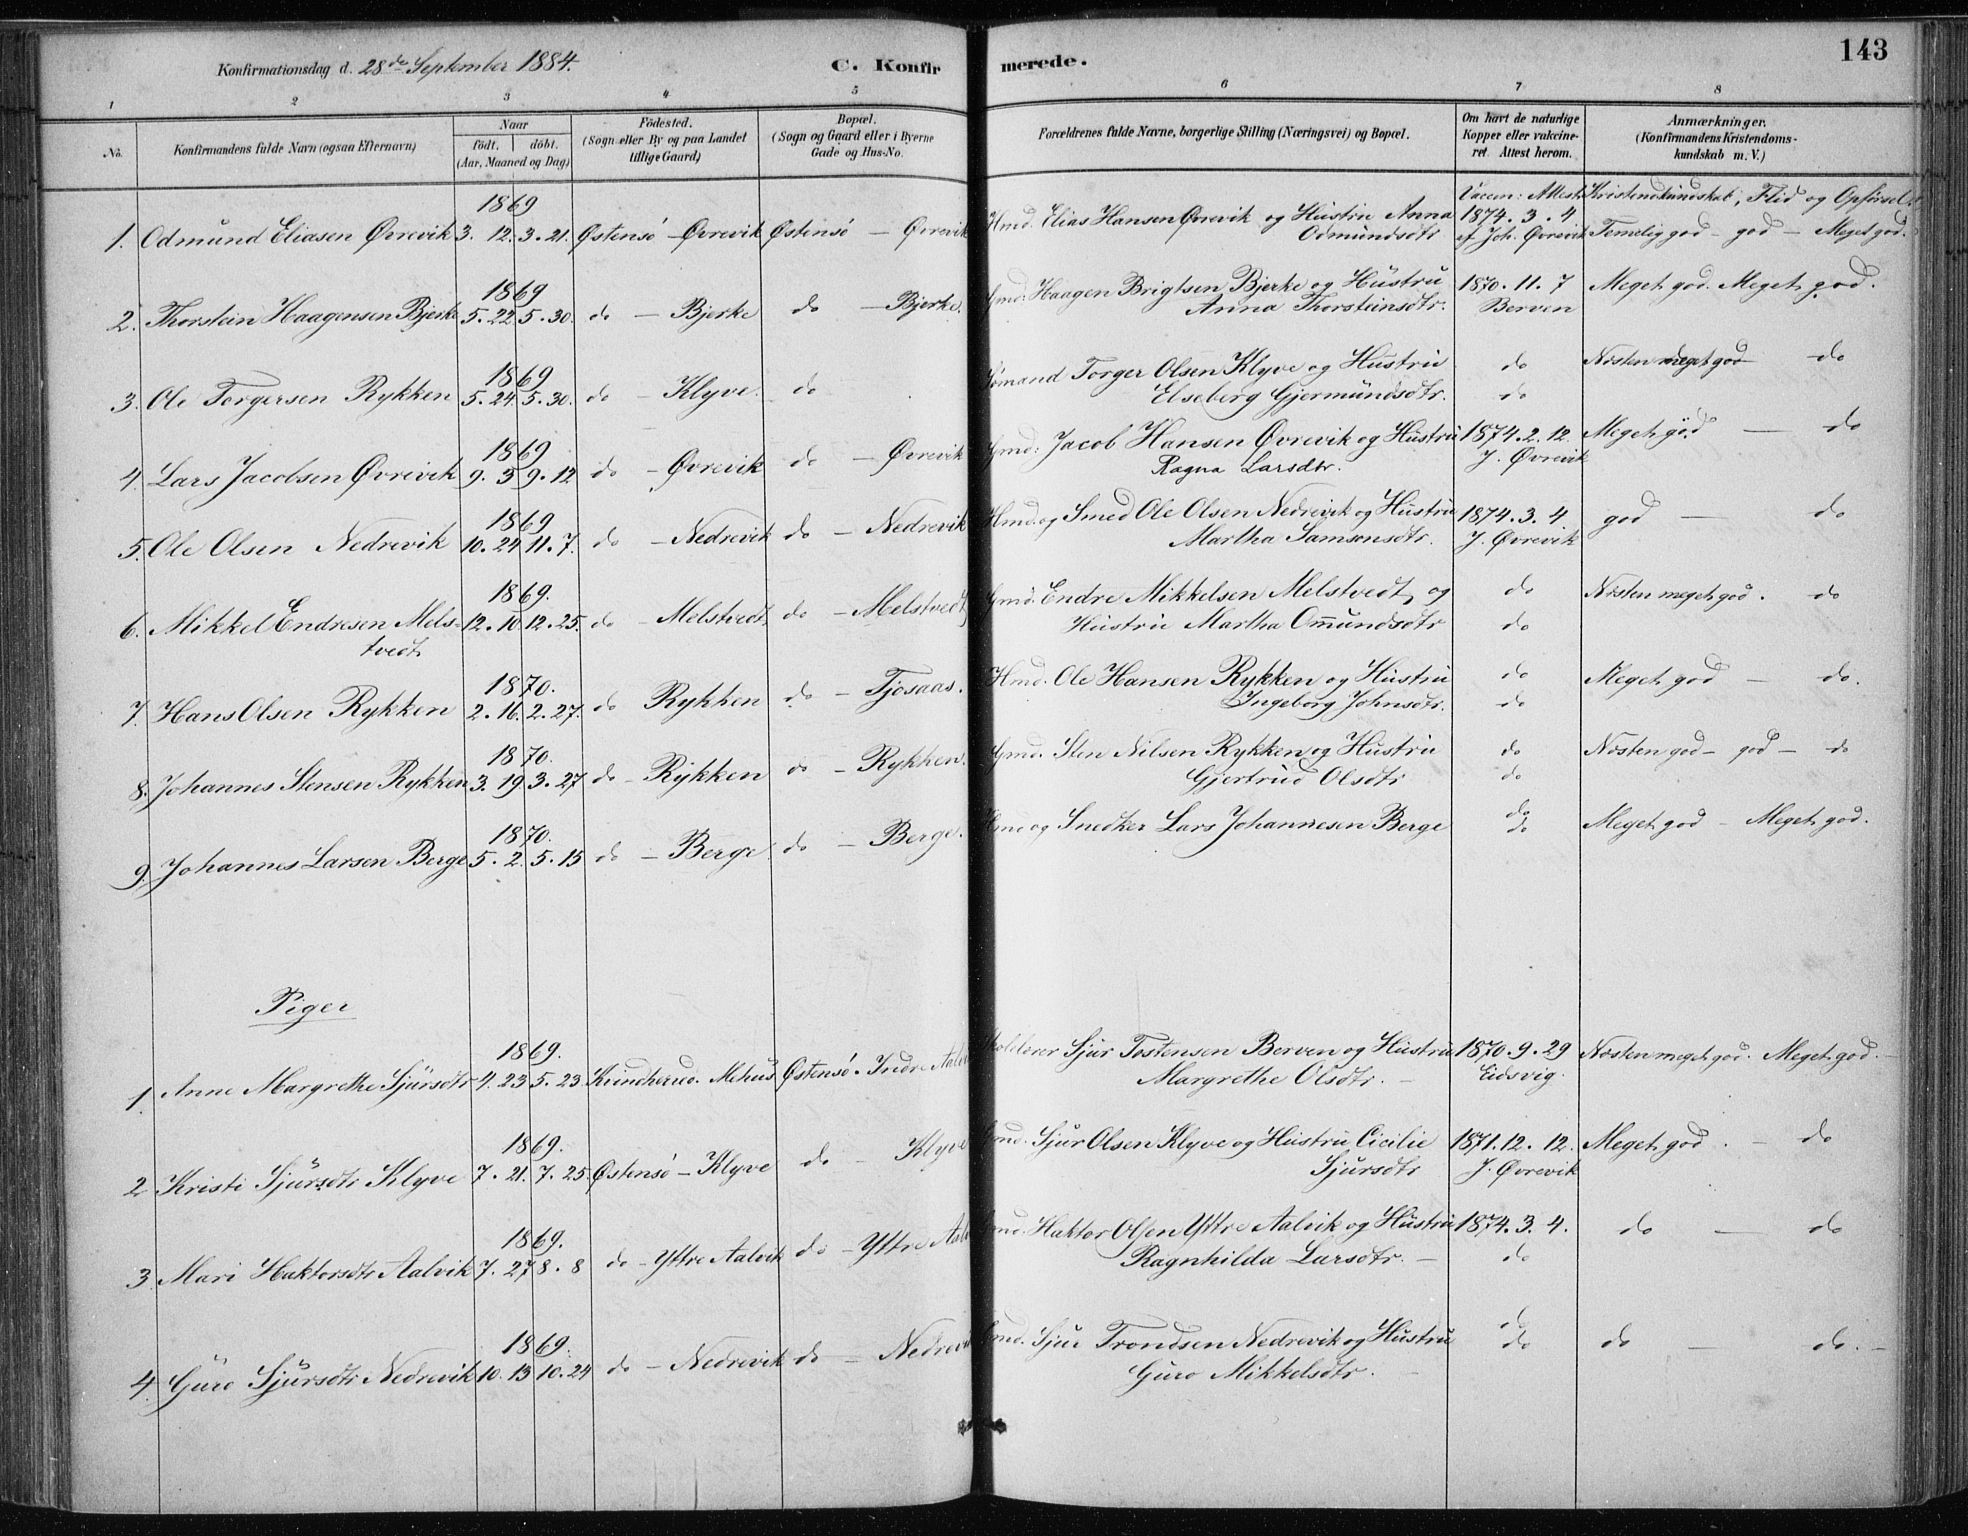 Konfirmationsdag d. 28de September 1884. C. Konfirmerede. 143
1 2 3 4 5 6 7 8
No. Konfirmandens fulde Navn (ogsaa Efternavn) Naar födt. döbt. (Aar, Maaned og Dag) Födested. (Sogn eller By og paa Landet tillige Gaard) Bopæl. (Sogn og Gaard eller i Byerne Gade og Hus-No. Forældrenes fulde Navne, borgerlige Stilling (Næringsvei) og Bopæl. Om havt de naturlige Kopper eller vakcineret. Attest herom. Anmærkninger. (Konfirmandens Kristendomskundskab m. V.)
1869 Vaccin: Attest Kristendkundskab, Flid og Opførsel
1. Odmund Eliasen Øvrevik 3. 12. 3. 21. Østensö - Øvrevik Østensö - Øvrevik Hmd. Elias Hansen Øvrevik og Hustru Anna 1874. 3. 4
Odmundsdtr. af Joh. Øvrevik Temelig god - god - Meget god.
1869
2. Thorstein Haagensen Bjerke 5. 22 5. 30. do - Bjerke do - Bjerke. Gmd. Haagen Brigtsen Bjerke og Hustru 1870. 11. 7 Meget god. Meget god.
Anna Thorsteinsdtr. Berven
1869
3. Ole Torgersen Rykken 5. 24. 5. 30. do - Klyve. do Sömand Torger Olsen Klyve og Hustru do Næsten meget god do
Elseberg Gjermundsdtr. do
1869
4. Lars Jacobsen Øvrevik 9. 3 9. 12 do - Øvrevik do - Øvrevik Gmd. Jacob Hansen Øvrevik og Hustru 1874. 2. 12. Meget god - do
Ragna Larsdtr. J. Øvrevik
1869
5. Ole Olsen Nedrevik 10. 24 11. 7. do - Nedrevik do - Nedrevik Hmd. og Smed Ole Olsen Nedrevik og Hustru 1874. 3. 4. god - do
Martha Samsonsdtr. J. Øvrevik
1869.
6. Mikkel Endresen Mels- 12. 10. 12. 25. do - Melstvedt, do - Melstvedt Gmd. Endre Mikkelsen Melstvedt og do Næsten meget god. do
tvedt Hustru Martha Omundsdtr do
1870.
7. Hans Olsen Rykken 2. 16. 2. 27. do Rykken do - Tjosaas. Hmd. Ole Hansen Rykken og Hustru do Meget god - do.
Ingeborg Johnsdtr. do
1870.
8. Johannes Stensen Rykken 3. 19. 3. 27 do - Rykken do - Rykken. Gmd. Sten Nilsen Rykken og Hustru do Næsten god - god - do
Gjertrud Olsdtr do
1870.
9. Johannes Larsen Berge 5. 2. 5. 15 do - Berge do - Berge. Hmd og Snedker Lars Johannesen Berge do Meget god - Meget god.
do
Piger
1869.
1. Anne Margrethe Sjursdtr 4. 23 5. 23 Kvindherred. Mehus Østensö. Indre Aalv Skolelærer Sjur Tostensen Berven og Hustru 1870. 9. 29 Næsten meget god. Meget god. -
Margrethe Olsdtr. - Eidsvig.
1869.
2 Kristi Sjursdtr Klyve 7. 21. 7. 25. Østensö - Klyve do - Klyve Gmd. Sjur Olsen Klyve og Hustru Cicilie 1871. 12. 12. Meget god. - do
Sjursdtr J. Øvrevik
1869.
3 Mari Haktorsdtr Aalvik 7. 27 8. 8 do - Yttre Aalvik do - Yttre Aalv Gmd. Haktor Olsen Yttre Aalvik og Hustru 1874. 3. 4. do - do
Ragnhilda Larsdtr. - do
1869.
4 Guro Sjursdtr Nedrevik 10. 13 10. 24 do - Nedrevik do - Nedrevik Gmd. Sjur Trondsen Nedrevik og Hustru do do do - do. -
Guro Mikkelsdtr. - do